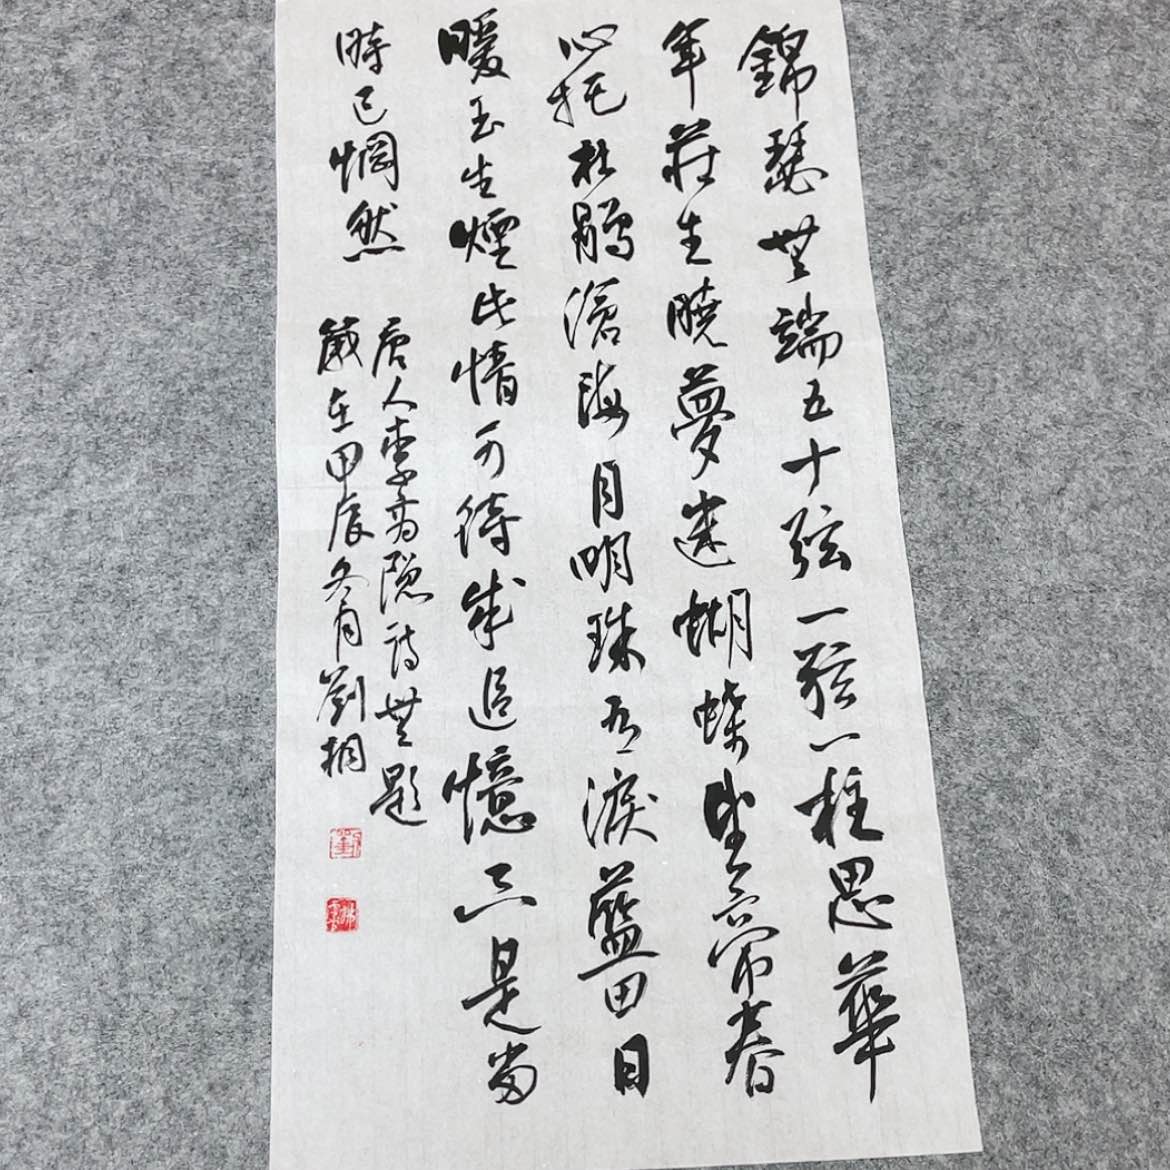 錦瑟無端五十弦一弦一柱思華
年莊生曉夢迷蝴蝶望帝春
心托杜鵑滄海月明珠有淚藍田日
暖玉生煙此情可待成追憶只是當
時已惘然
唐人李商隱詩無題
歲在甲辰冬月劉